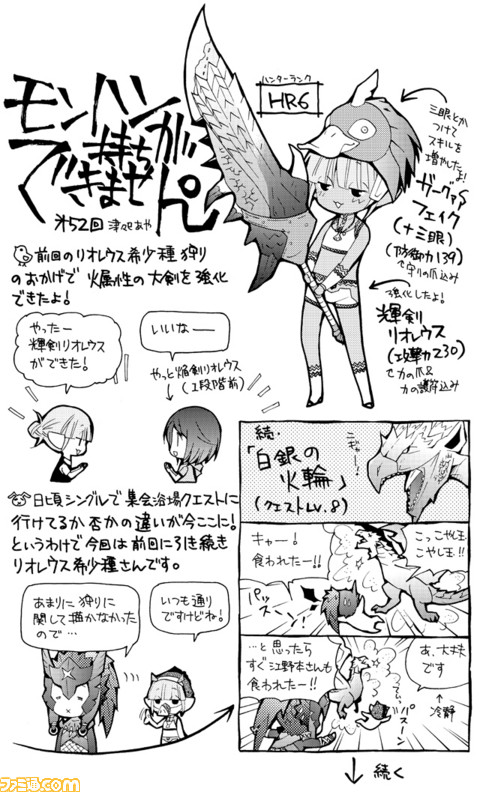 モンハンが
持ち
できません
第52回 津々巴あや
ハンターランク
HR6
三眼とか
つけて
スキルを
増やしたよ!
ガーグァS
フェイク
(+三眼)
(防御力139)
で守りの爪込み
強化したよ!
輝剣
リオレウス
(攻撃力230)
力の護符込み
前回のリオレウス希少種狩り
のおかげで 火属性の大剣を強化
できたよ!
やったー
輝剣リオレウス
ができた!
いいなー
やっと焔剣リオレウス
(1段階前)
日頃シングルで集会浴場クエストに
行けてるか否かの違いが今ここに!
というわけで今回は前回に引き続き
リオレウス希少種さんです。
あまりに狩りに
関して描かなかった
ので…
いつも通り
ですけどね!
続・
「白銀の
火輪」
(クエストLv.8)
ニギャー!
こっこやし玉
こやし玉!!
キャー!
食われたー!!
パッスーン!
あ、大丈夫
です
冷静
…と思ったら
すぐ江野本さんも
食われたー!!
パスーン
続く
ファミ通.com